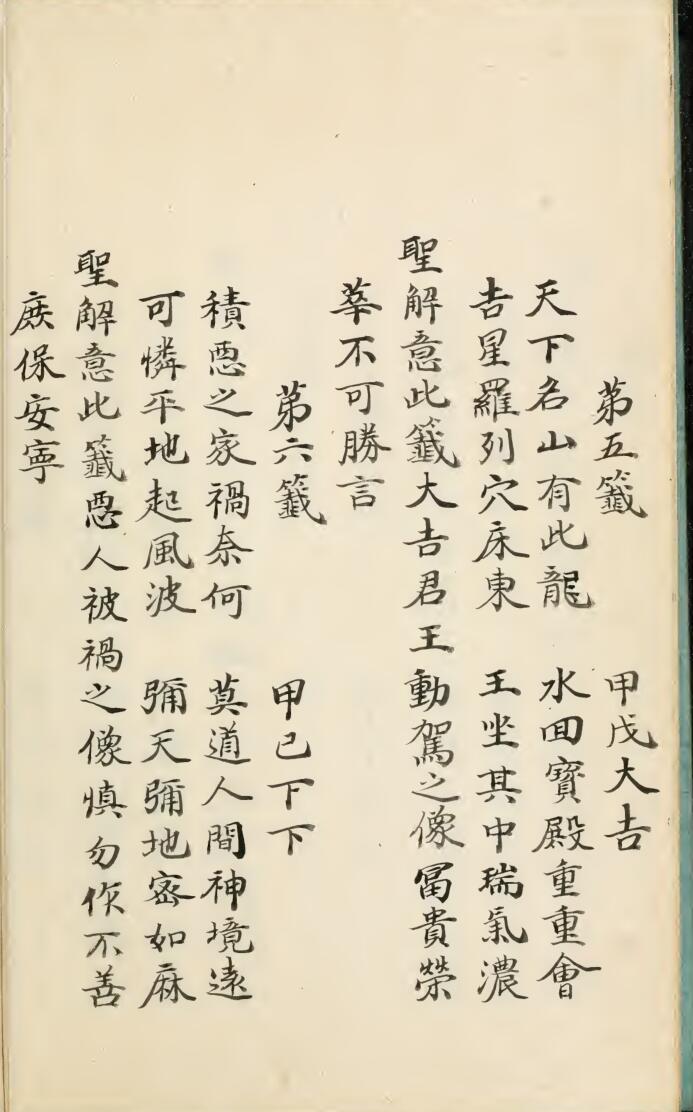 第五籤 甲戊大吉
天下名山有此龍 水回寶殿重重會
吉星羅列穴床東 王坐其中瑞氣濃
聖解意此籤大吉君王動駕之像冨貴榮
華不可勝言
第六籤 甲己下下
積惡之家禍奈何 莫道人間神境遠
可憐平地起風波 彌天彌地密如麻
聖解意此籤惡人被禍之像慎勿作不善
庶保安寧